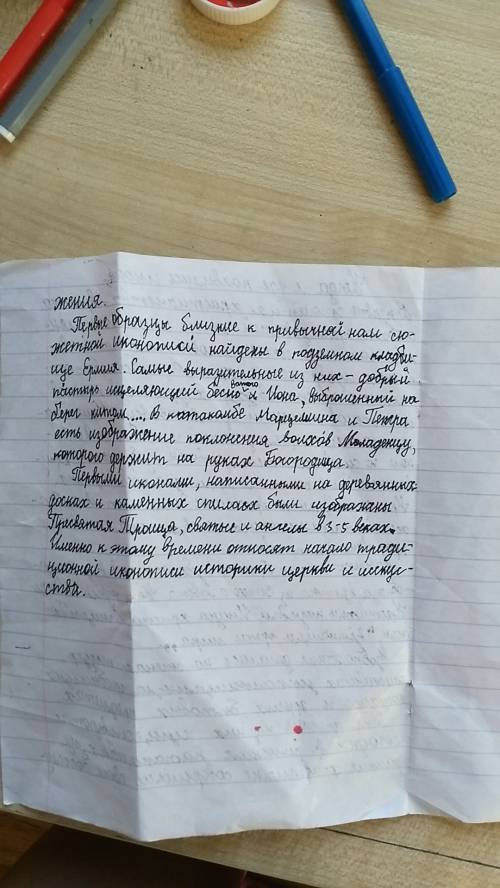 жения.
Первые образцы близкие к привычной нам сю-
жетной иконописи найдены в подземном кладби-
ще Ермия. Самые выразительные из них - добрый
пастырь исцеляющий бесноватого и Иона, выброшенный на
берег китом,... В катакомбе Марцеллина и Петра
есть изображение поклонения волхвов Младенцу,
которого держит на руках Богородица.
Первыми иконами, написанными на деревянных
досках и каменных спилах были изображены
Пресвятая Троица, святые и ангелы в 3-5 веках.
Именно к этому времени относят начало тради-
ционной иконописи историки церкви и искус-
ства.